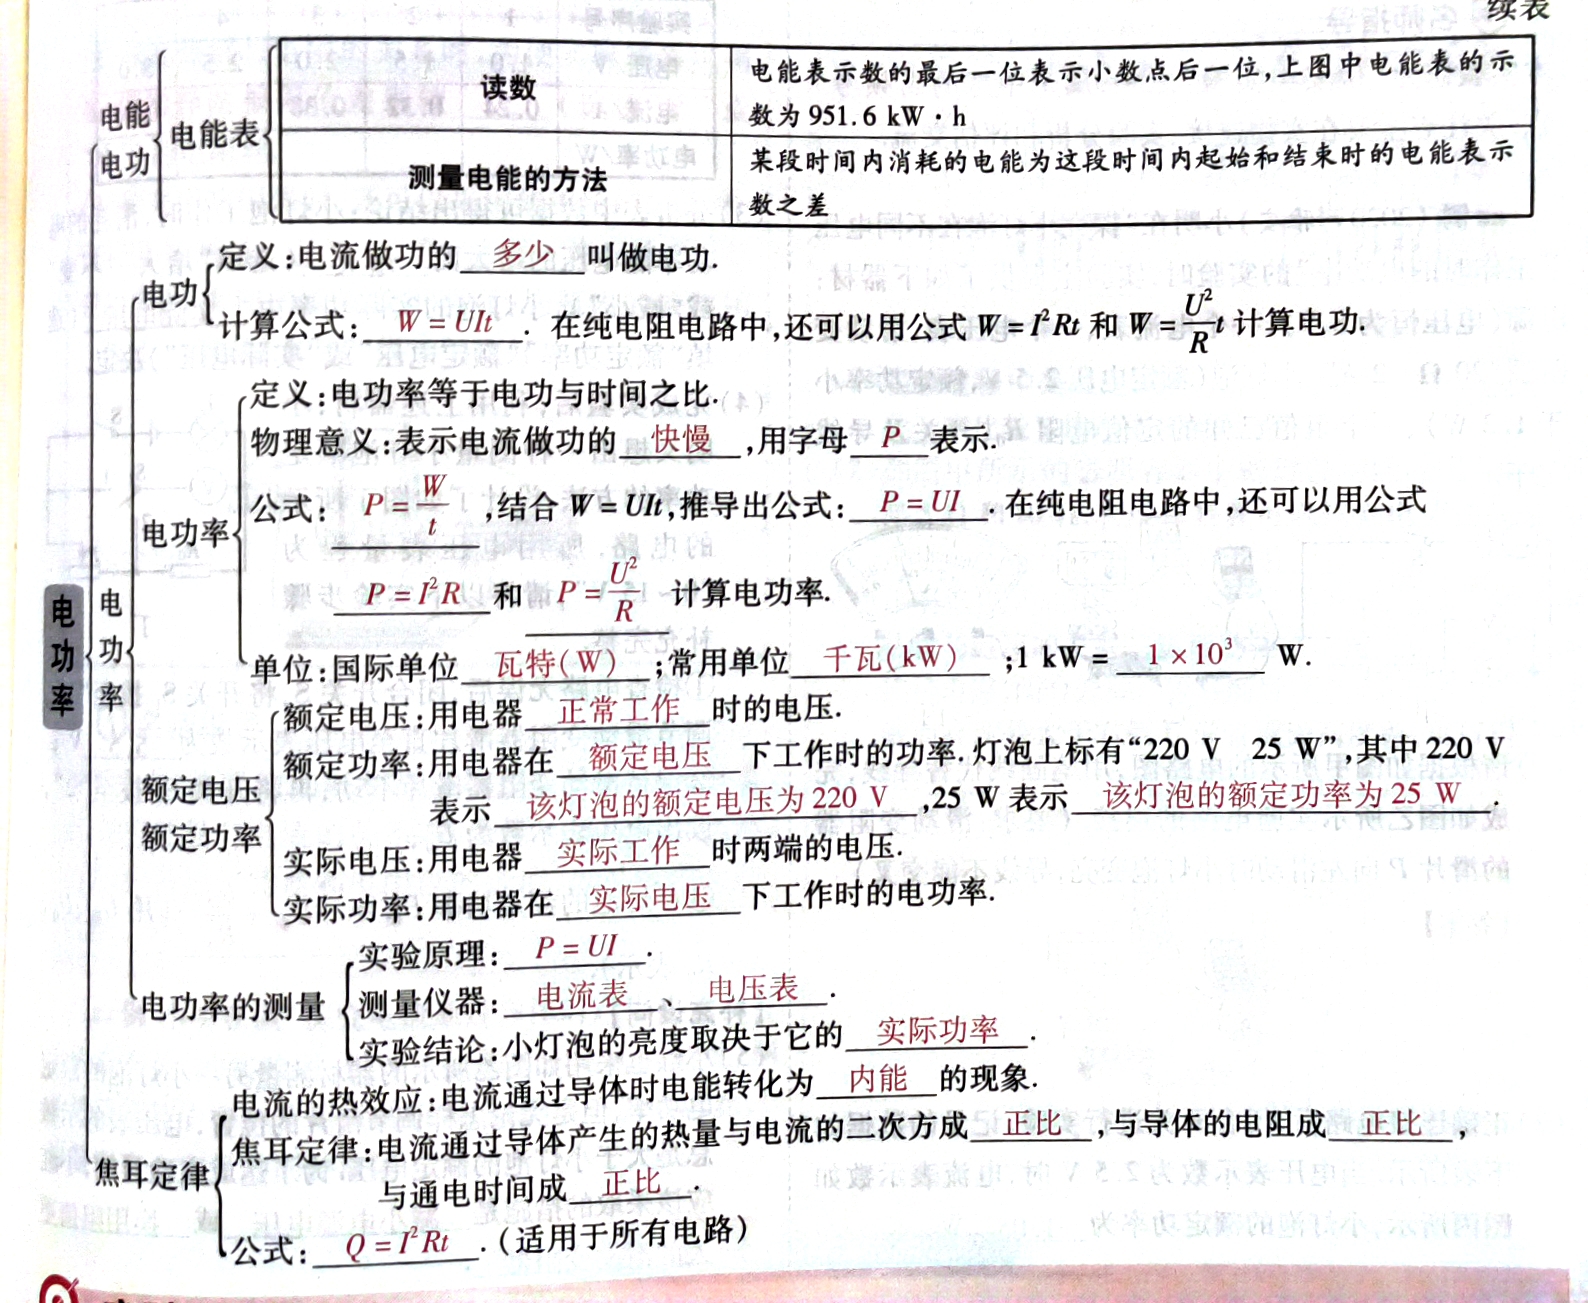 续表
电能
电功
电能表
读数
电能表示数的最后一位表示小数点后一位,上图中电能表的示
数为 951.6 kW·h
测量电能的方法
某段时间内消耗的电能为这段时间内起始和结束时的电能表示
数之差
电功率
电功率
电功
定义:电流做功的 多少 叫做电功.
计算公式: W=UIt . 在纯电阻电路中,还可以用公式 W=I²Rt 和 W=U²/R t 计算电功.
电功率
定义:电功率等于电功与时间之比.
物理意义:表示电流做功的 快慢 ,用字母 P 表示.
公式: P=W/t ,结合 W=UIt,推导出公式: P=UI . 在纯电阻电路中,还可以用公式
P=I²R 和 P=U²/R 计算电功率.
单位:国际单位 瓦特(W) ;常用单位 千瓦(kW) ;1 kW= 1×10³ W.
额定电压
额定功率
额定电压:用电器 正常工作 时的电压.
额定功率:用电器在 额定电压 下工作时的功率. 灯泡上标有“220 V 25 W”,其中 220 V
表示 该灯泡的额定电压为 220 V ,25 W 表示 该灯泡的额定功率为 25 W .
实际电压:用电器 实际工作 时两端的电压.
实际功率:用电器在 实际电压 下工作时的电功率.
电功率的测量
实验原理: P=UI .
测量仪器: 电流表 、 电压表 .
实验结论:小灯泡的亮度取决于它的 实际功率 .
焦耳定律
电流的热效应:电流通过导体时电能转化为 内能 的现象.
焦耳定律:电流通过导体产生的热量与电流的二次方成 正比 ,与导体的电阻成 正比 ,
与通电时间成 正比 .
公式: Q=I²Rt .(适用于所有电路)